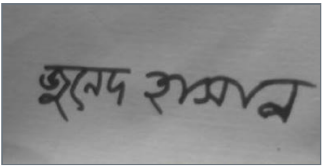 জুনেদ হাসান